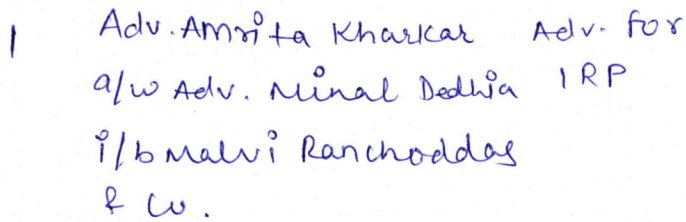 1 Adv. Amrita Kharkar Adv. for
a/w Adv. Minal Dedhia IRP
i/b Malvi Ranchoddas
& Co.